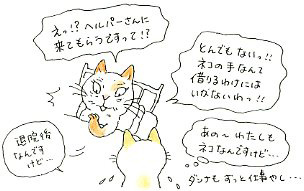 えっ!? ヘルパーさんに
来てもらうですって!?
とんでもないっ!!
ネコの手なんて
借りるわけには
いかないわっ!!
退院後
なんです
けど…
あの〜 わたしも
ネコなんですけど…
ダンナも ずっと仕事やし…